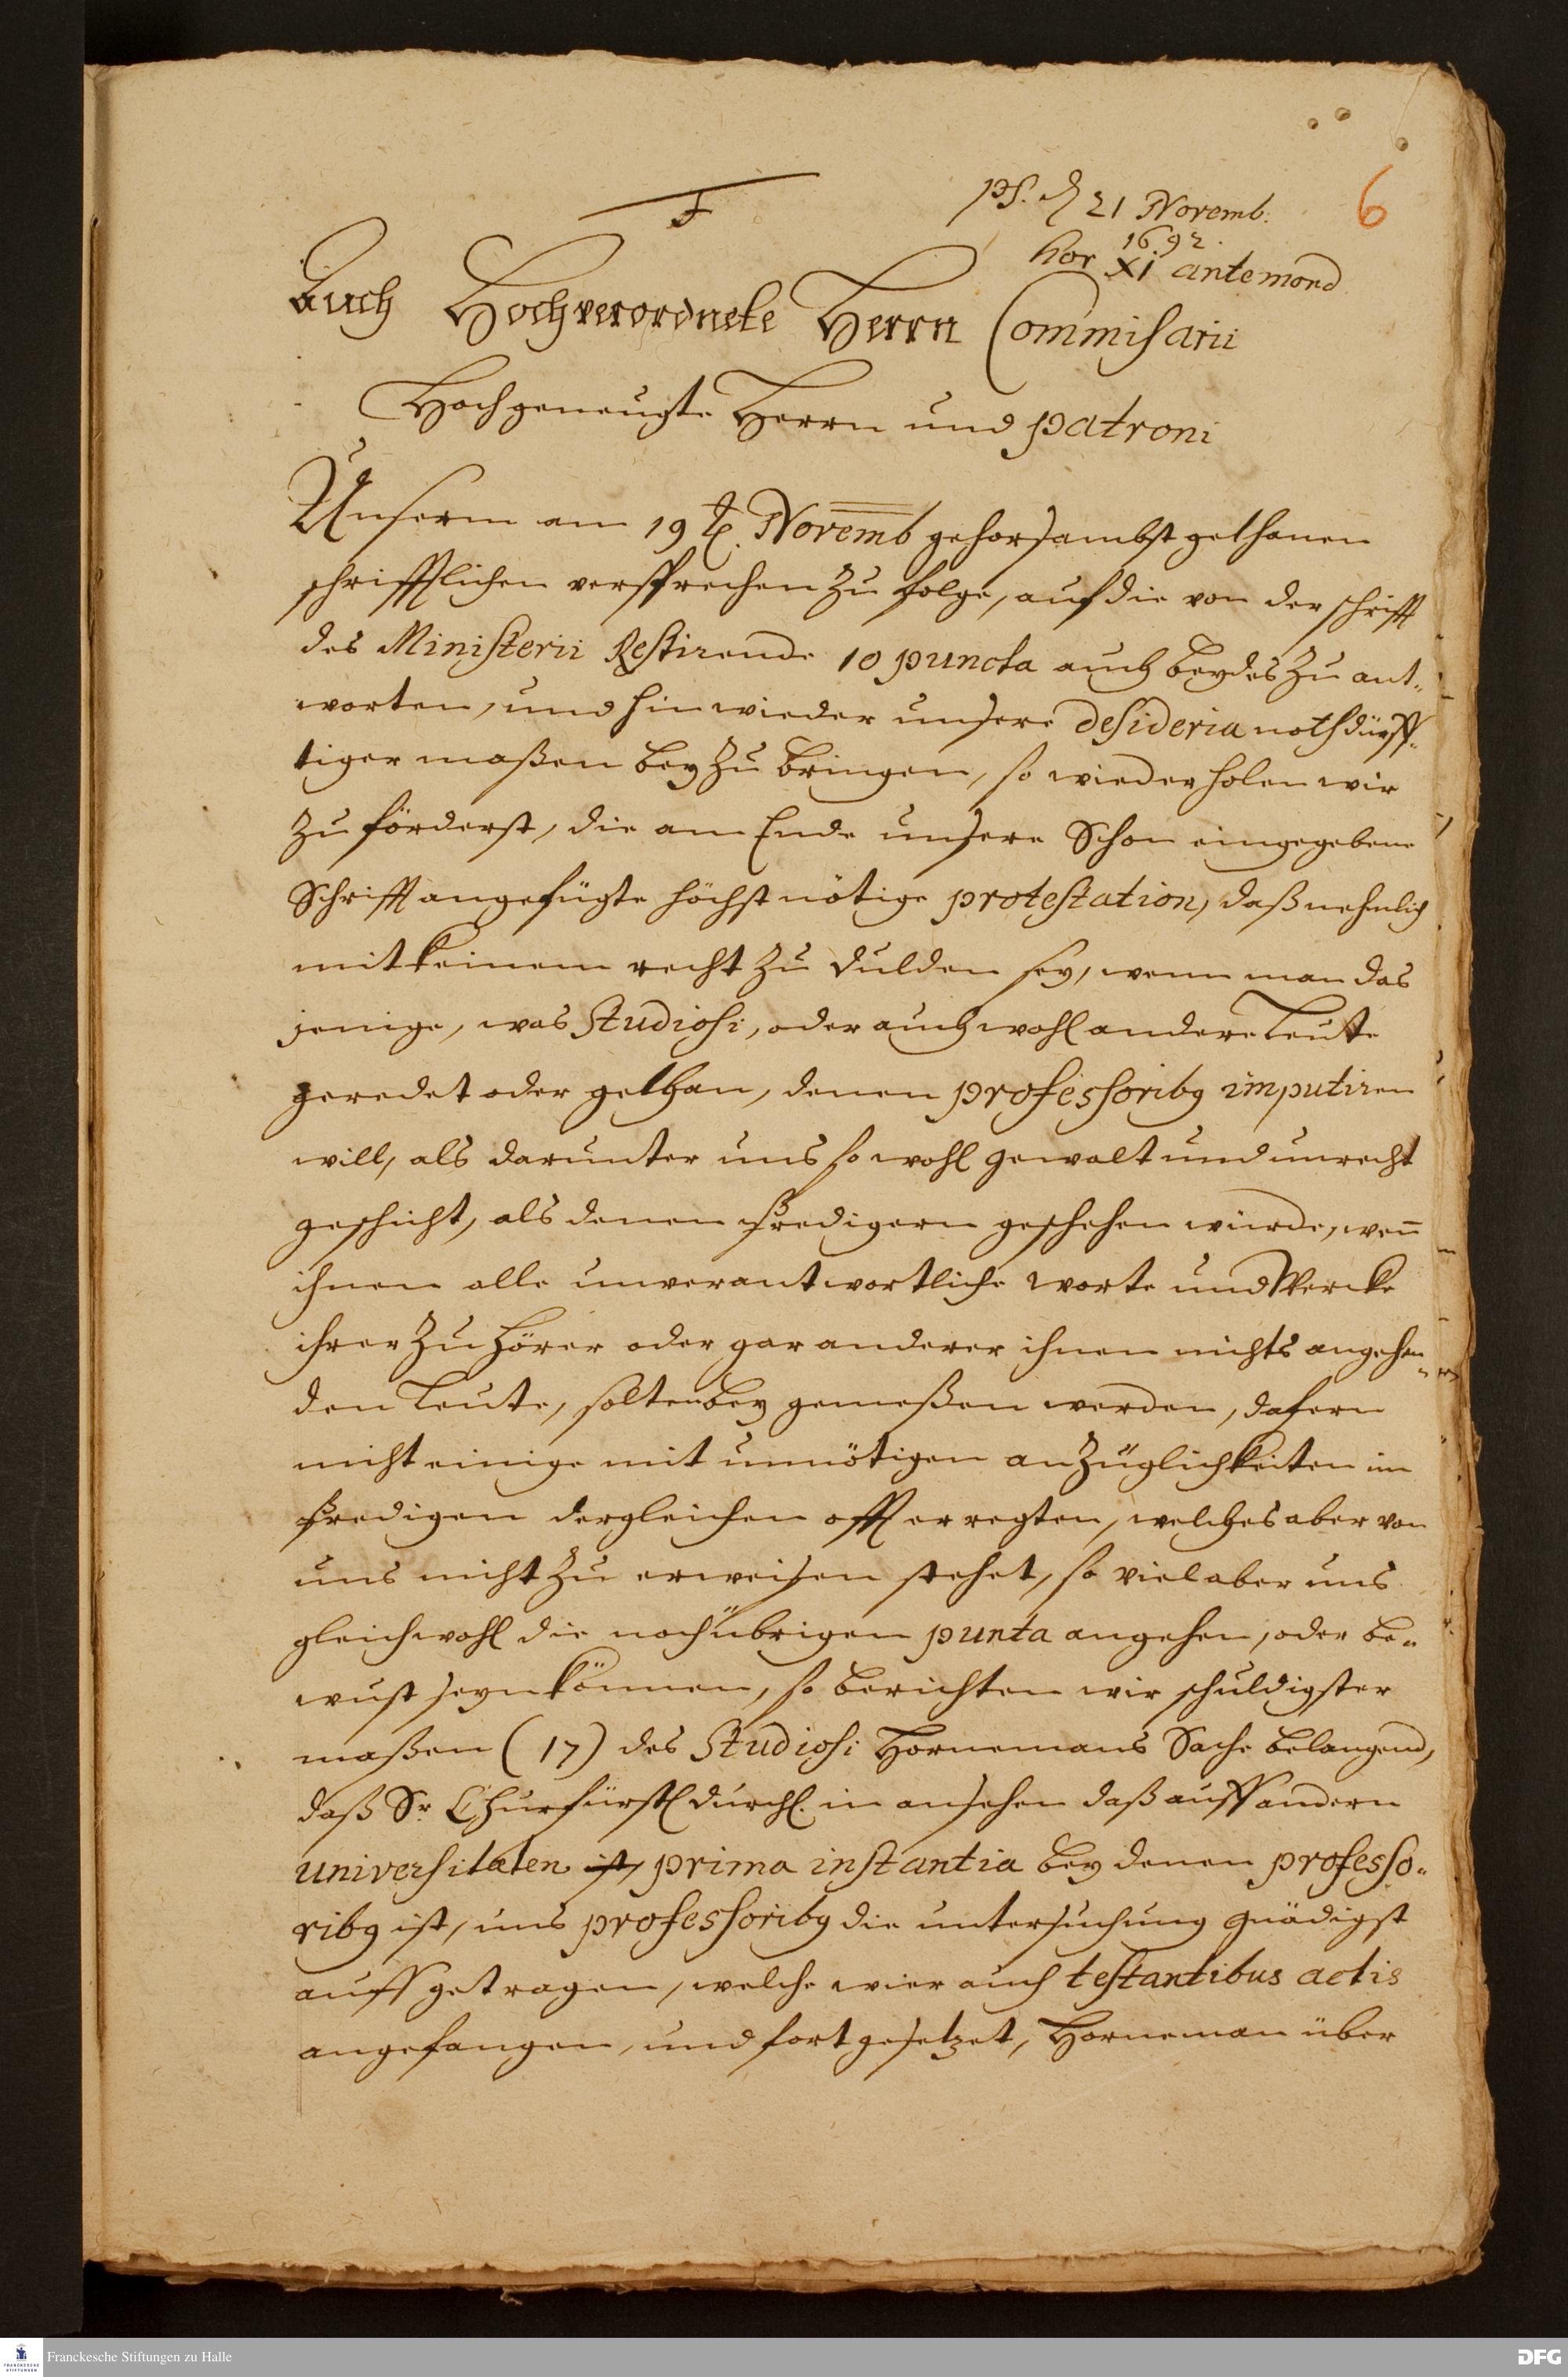 F
ps. d 21 Novemb.
1692.
hor XI antemerid
6
Auch Hochverordnete Herrn Commisarii
Hochgeneugte Herrn und patroni
Unserm am 19 t. Novemb gehorsambst gethanen
schrifftlichen versprechen zu folge, auf die von der schrifft
des Ministerii Restirende 10 puncta auch beydes zu ant-
worten, und hinwieder unsere desideria nothdürff-
tiger maßen bey zu bringen, so wiederholen wir
zu förderst, die am Ende unsere Schon eingegebene
Schrifft angefügte höchst nötige protestation, daß nehmlich
mit keinem recht zu dulden sey, wenn man das
jenige, was Studiosi, oder auch wohl andere Leute
geredet oder gethan, denen professoribg imputiren
will, als darunter uns so wohl gewalt und unrecht
geschicht, als denen Predigern geschehen würde, wen̄
ihnen alle unverantwortliche worte und Wercke
ihrer Zuhörer oder gar anderer ihnen nichts angehen-
den Leute, solten bey gemeßen werden, dafern
nicht einige mit unnötigen anzüglichkeiten im
Predigen dergleichen offt erregten, welches aber von
uns nicht zu erweisen stehet, so viel aber uns
gleichwohl die noch übrigen punta angehen, oder be-
wust seyn können, so berichten wir schuldigster
maßen (17) des Studiosi Hornemans Sache belangend,
daß Sr. Churfürstl durchl. in ansehen daß auff andern
universitæten ist, prima instantia bey denen professo-
ribg ist, uns professoribg die untersuchung gnädigst
auffgetragen, welche wier auch testantibus actis
angefangen, und fortgesetzet, Horneman über
Franckesche Stiftungen zu Halle
DFG